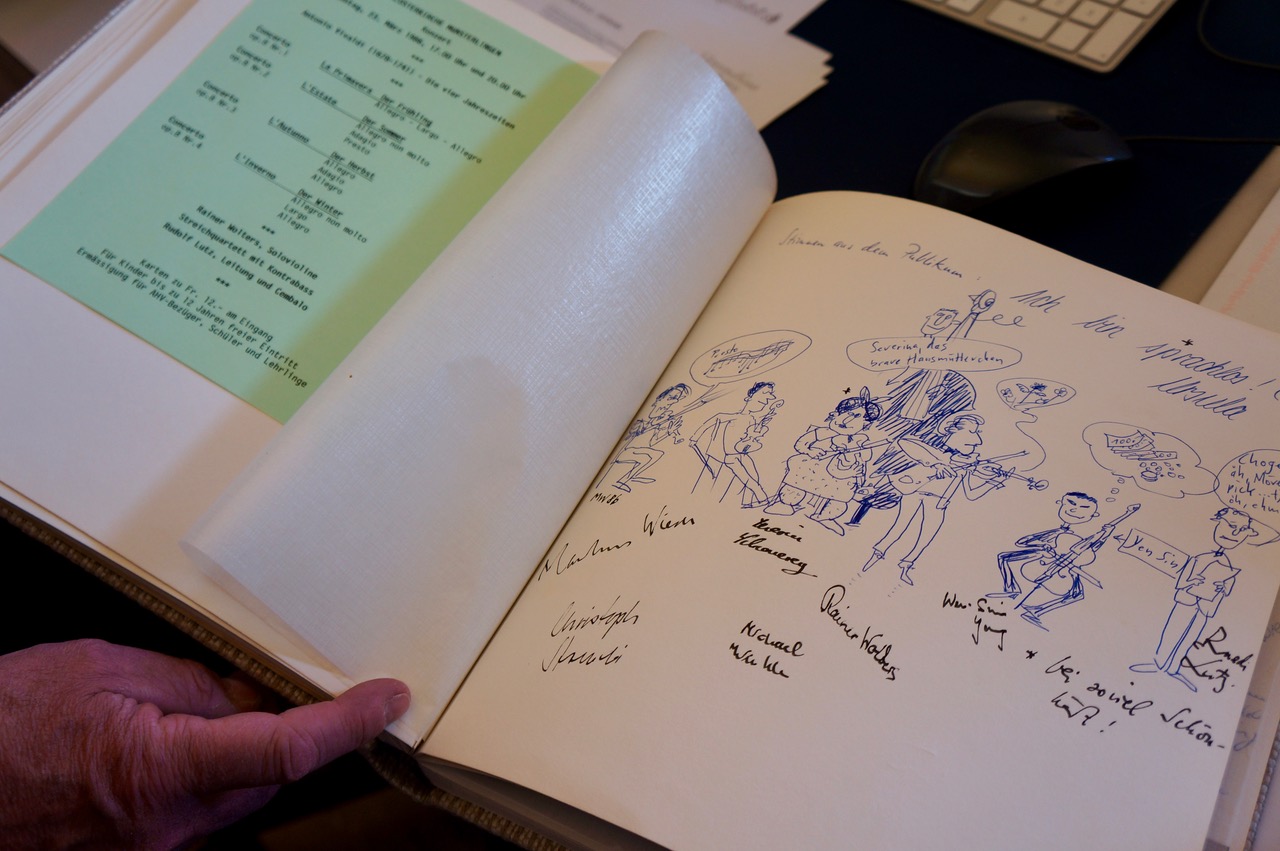 KLOSTERKIRCHE MÜNSTERLINGEN
Konzert
Sonntag, 23. März 1986, 17.00 Uhr und 20.00 Uhr
***
Antonio Vivaldi (1678-1741) - Die vier Jahreszeiten
Concerto La Primavera Der Frühling
op.8 Nr.1 Allegro - Largo - Allegro
Concerto L'Estate Der Sommer
op.8 Nr.2 Allegro non molto
Adagio
Presto
Concerto L'Autunno Der Herbst
op.8 Nr.3 Allegro
Adagio
Allegro
Concerto L'Inverno Der Winter
op.8 Nr.4 Allegro non molto
Largo
Allegro
***
Rainer Wolters, Solovioline
Streichquartett mit Kontrabass
Rudolf Lutz, Leitung und Cembalo
***
Karten zu Fr. 12.- am Eingang
Für Kinder bis zu 12 Jahren freier Eintritt
Ermässigung für AHV-Bezüger, Schüler und Lehrlinge
Stimmen aus dem Publikum:
Ich bin sprachlos!*
Ursula
Severine, das
brave Hausmütterchen
1000
Yen Sin
MW 86
Markus Wieser
Christoph
Rainer Wolters
Michael
* bei soviel Schön-
heit!